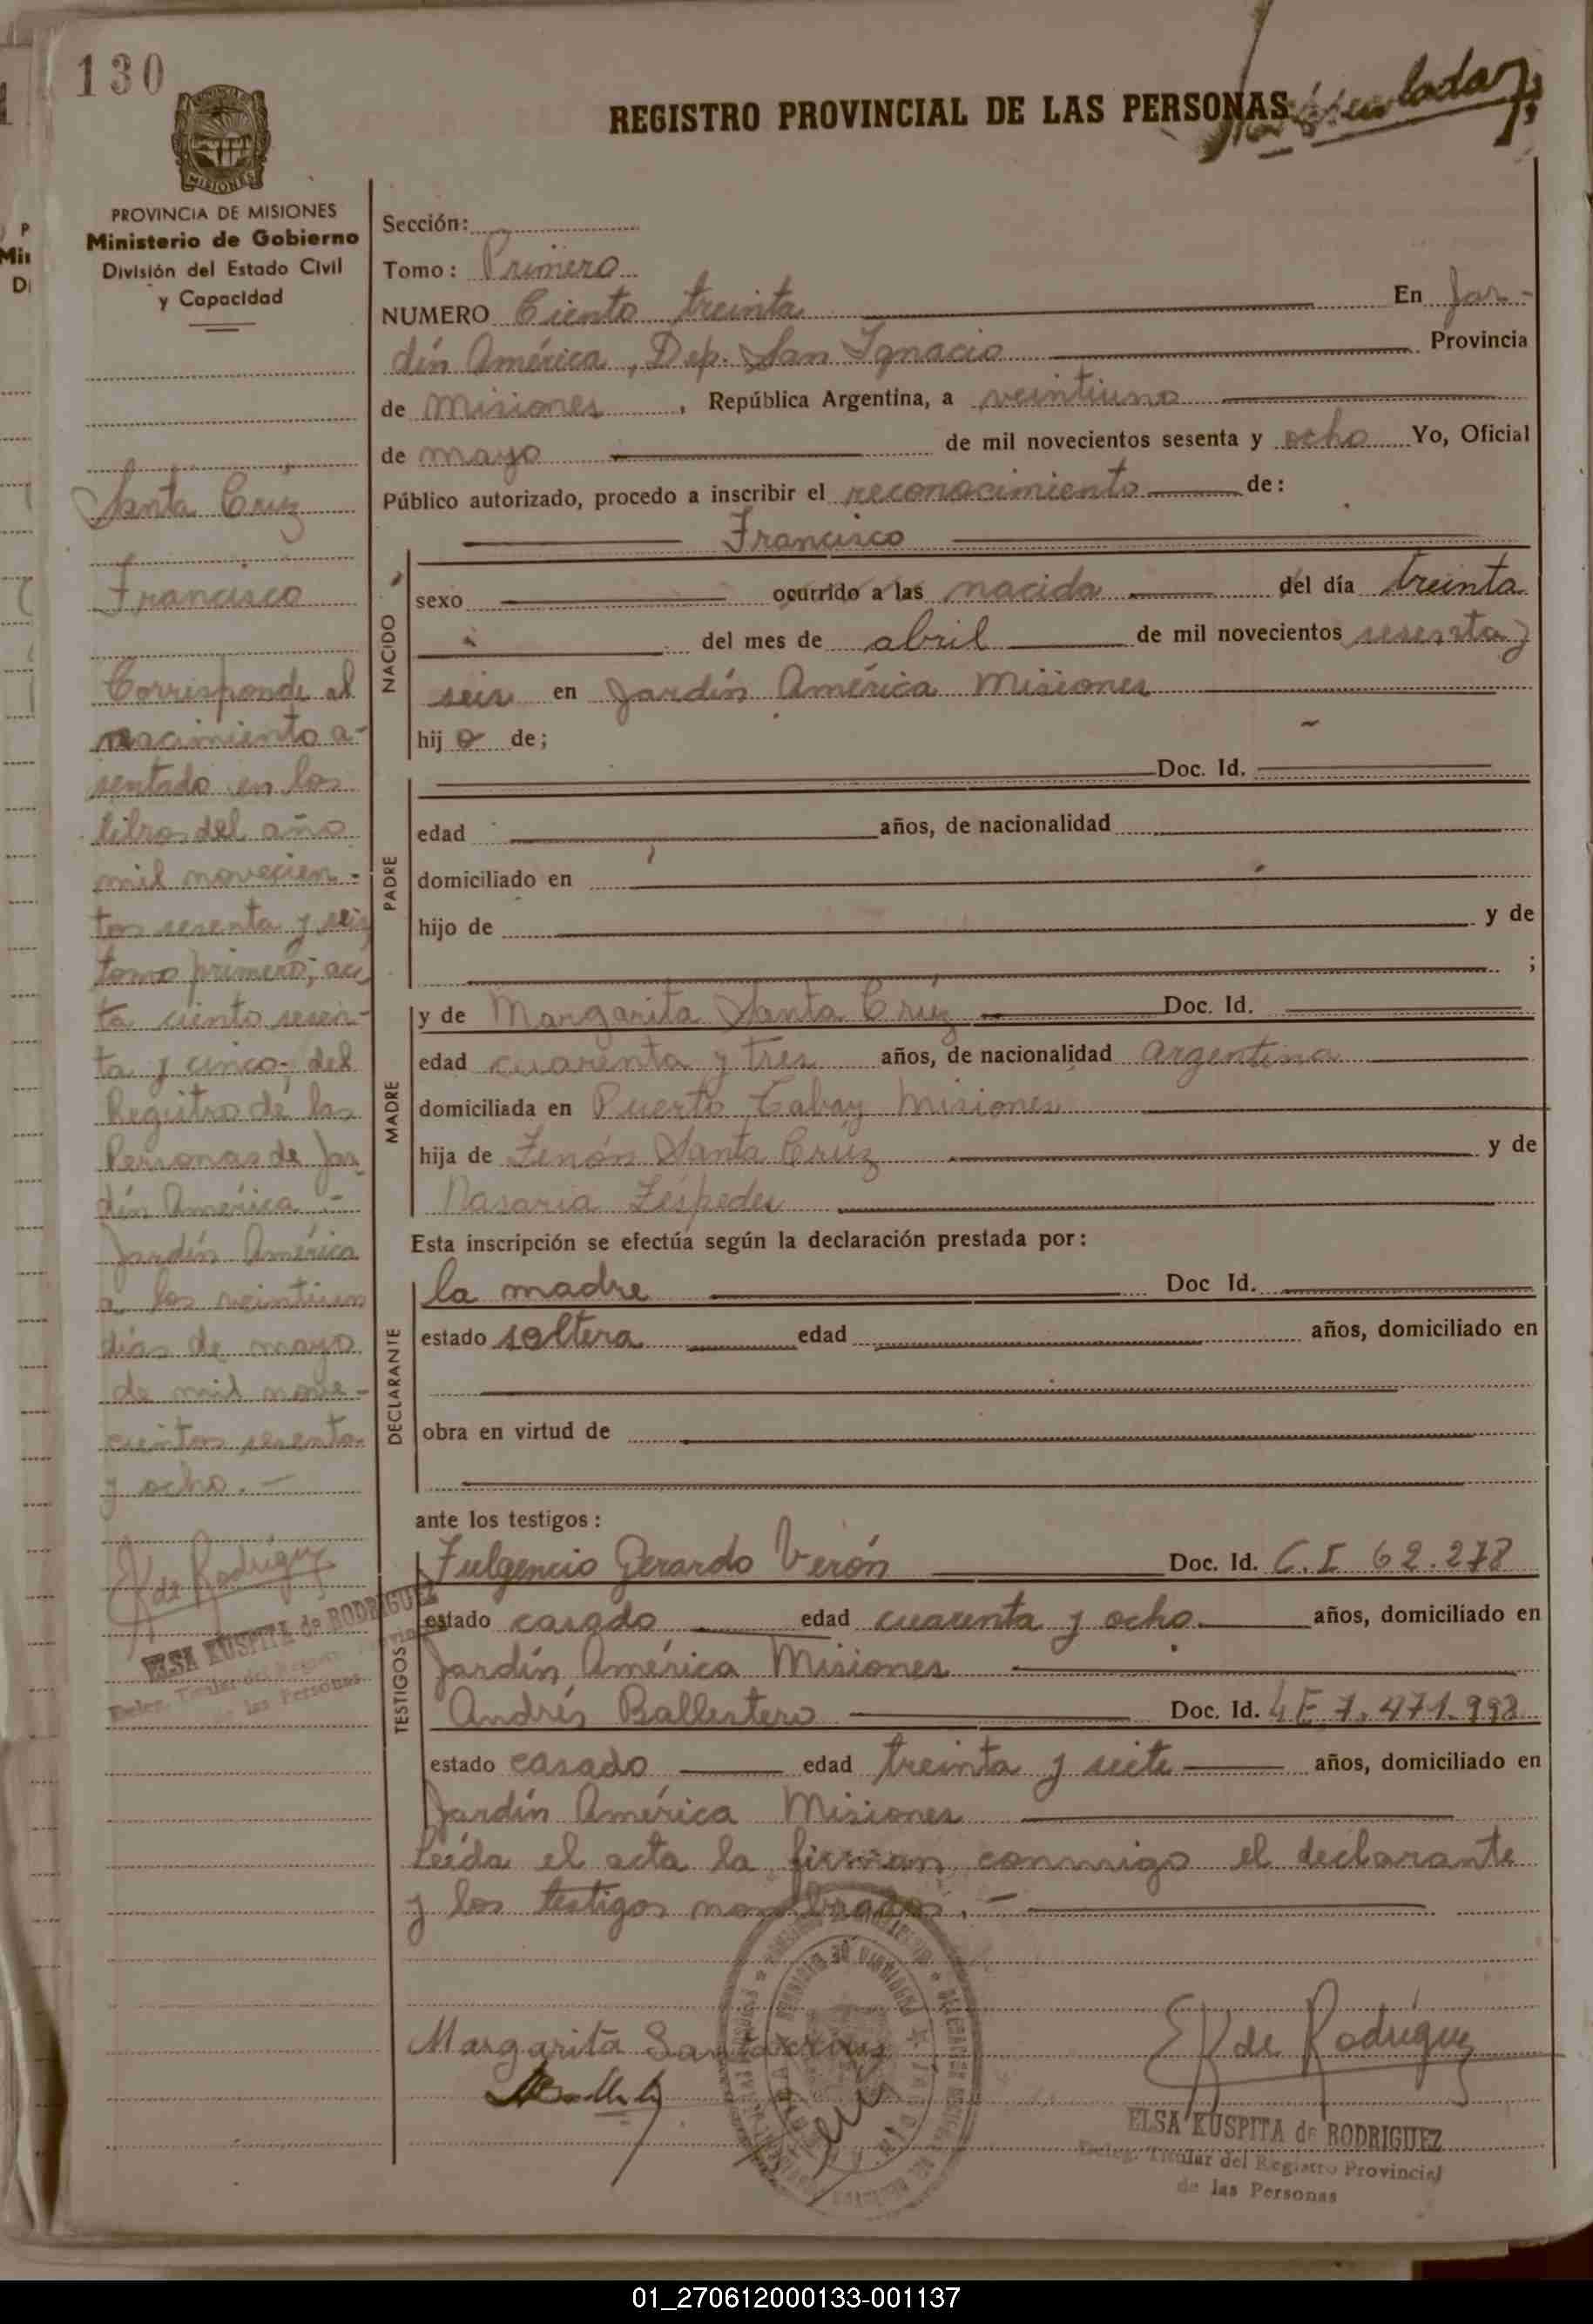 130
REGISTRO PROVINCIAL DE LAS PERSONAS
MISIONES
PROVINCIA DE MISIONES
Ministerio de Gobierno
División del Estado Civil
y Capacidad
Santa Crúz
Francisco
Corresponde al
nacimiento a-
sentado en los
libros del año
mil novecien-
tos sesenta y seis
tomo primero; ac
ta ciento sesen-
ta y cinco; del
Registro de las
Personas de Jar
dín América.-
Jardín América
a los veintiun
días de mayo
de mil nove-
cientos sesenta
y ocho.-
EK de Rodríguez
ELSA KUSPITA de RODRIGUEZ
Deleg. Titular del Registro Provincial
de las Personas
Sección:
Tomo: Primero
NUMERO Ciento treinta En Jar-
dín América, Dep. San Ignacio Provincia
de Misiones, República Argentina, a veintiuno
de mayo de mil novecientos sesenta y ocho Yo, Oficial
Público autorizado, procedo a inscribir el reconocimiento de:
Francisco
NACIDO
sexo ocurrido a las nacida del día treinta
del mes de abril de mil novecientos sesenta y
seis en Jardín América Misiones
hijo de;
PADRE
Doc. Id.
edad años, de nacionalidad
domiciliado en
hijo de y de
;
MADRE
y de Margarita Santa Crúz Doc. Id.
edad cuarenta y tres años, de nacionalidad Argentina
domiciliada en Puerto Tabay Misiones
hija de Zenón Santa Crúz y de
Nasaria Zéspedes
Esta inscripción se efectúa según la declaración prestada por:
DECLARANTE
la madre Doc Id.
estado soltera edad años, domiciliado en
obra en virtud de
ante los testigos:
TESTIGOS
Fulgencio Gerardo Verón Doc. Id. C.I 62.278
estado casado edad cuarenta y ocho años, domiciliado en
Jardín América Misiones
Andrés Ballestero Doc. Id. LE 7.471.998
estado casado edad treinta y siete años, domiciliado en
Jardín América Misiones
Leída el acta la firman conmigo el declarante
y los testigos nombrados.-
Margarita Santacruz
EK de Rodríguez
ELSA KUSPITA de RODRIGUEZ
Deleg. Titular del Registro Provincial
de las Personas
01_270612000133-001137